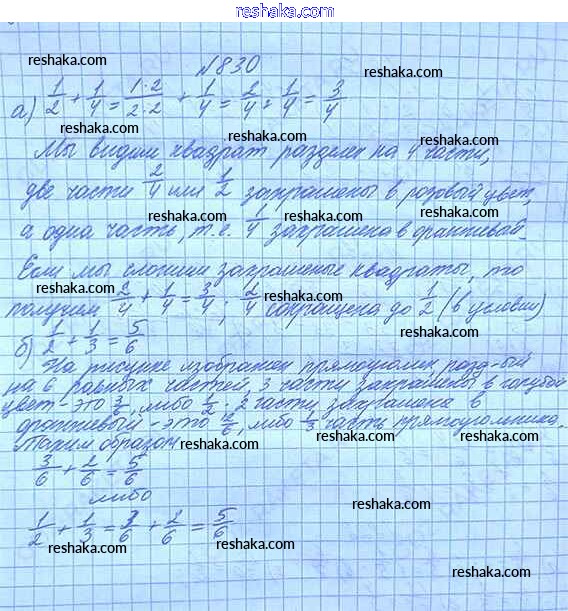 reshaka.com
reshaka.com
№830
reshaka.com
а) 1/2 + 1/4 = 1·2/2·2 + 1/4 = 2/4 + 1/4 = 3/4
reshaka.com
reshaka.com
Мы видим квадрат разделен на 4 части,
reshaka.com
две части 2/4 или 1/2 закрашены в розовый цвет,
reshaka.com
reshaka.com
а одна часть, т.е. 1/4 закрашена в оранжевый.
reshaka.com
Если мы сложим закрашеные квадраты, то
reshaka.com
получим 2/4 + 1/4 = 3/4; 2/4 сокращена до 1/2 (в условии)
reshaka.com
reshaka.com
б) 1/2 + 1/3 = 5/6
reshaka.com
reshaka.com
На рисунке изображен прямоугольник, разд-ый
на 6 равных частей, 3 части закрашены в голубой
reshaka.com
reshaka.com
цвет - это 3/6, либо 1/2; 2 части закрашена в
оранжевый - это 2/6, либо 1/3 часть прямоугольника.
reshaka.com
reshaka.com
Таким образом
3/6 + 2/6 = 5/6
reshaka.com
либо
reshaka.com
1/2 + 1/3 = 3/6 + 2/6 = 5/6
reshaka.com
reshaka.com
reshaka.com